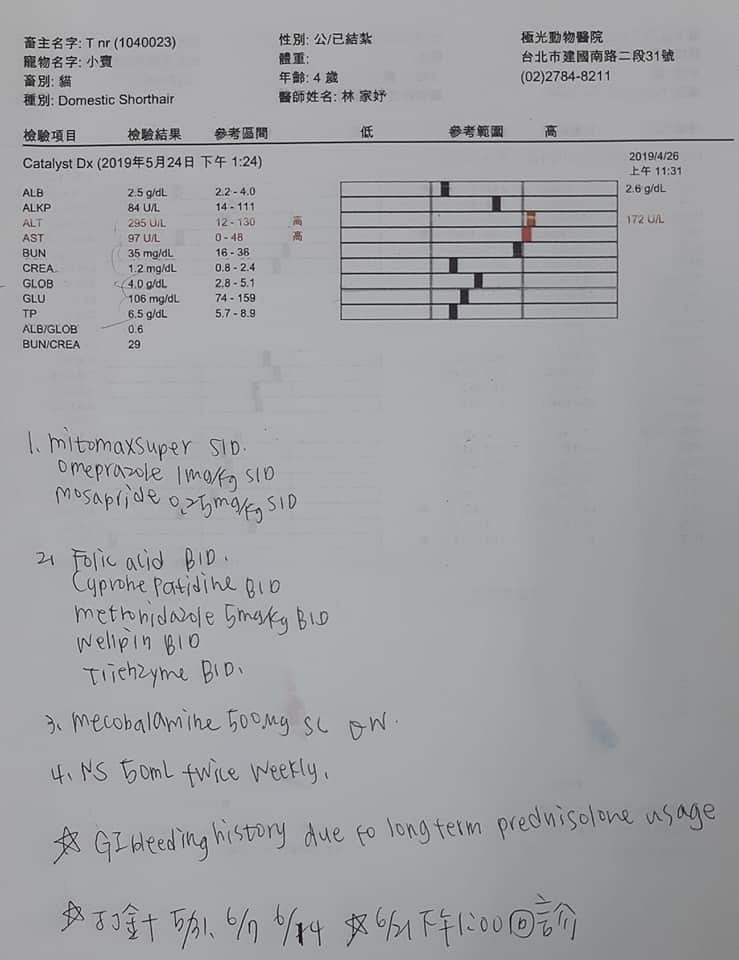 畜主名字: T nr (1040023) 性別: 公/已結紮 極光動物醫院
寵物名字: 小寶 體重: 台北市建國南路二段31號
畜別: 貓 年齡: 4 歲 (02)2784-8211
種別: Domestic Shorthair 醫師姓名: 林 家妤
檢驗項目 檢驗結果 參考區間 低 參考範圍 高
Catalyst Dx (2019年5月24日 下午 1:24) 2019/4/26
上午 11:31
ALB 2.5 g/dL 2.2 - 4.0 2.6 g/dL
ALKP 84 U/L 14 - 111
ALT 295 U/L 12 - 130 高 172 U/L
AST 97 U/L 0 - 48 高
BUN 35 mg/dL 16 - 36
CREA 1.2 mg/dL 0.8 - 2.4
GLOB 4.0 g/dL 2.8 - 5.1
GLU 106 mg/dL 74 - 159
TP 6.5 g/dL 5.7 - 8.9
ALB/GLOB 0.6
BUN/CREA 29
1. mitomaxsuper SID.
omeprazole 1mg/kg SID
mosapride 0.25mg/kg SID
2. Folic acid BID.
Cyprohepatidine BID
metronidazole 5mg/kg BID
wellpin BID
Trienzyme BID.
3. mecobalamine 500µg SC QW.
4. NS 50mL twice weekly.
☆ GI bleeding history due to long term prednisolone usage
☆ 打針 5/31、6/7 6/14 ☆ 6/21 下午1:00 回診